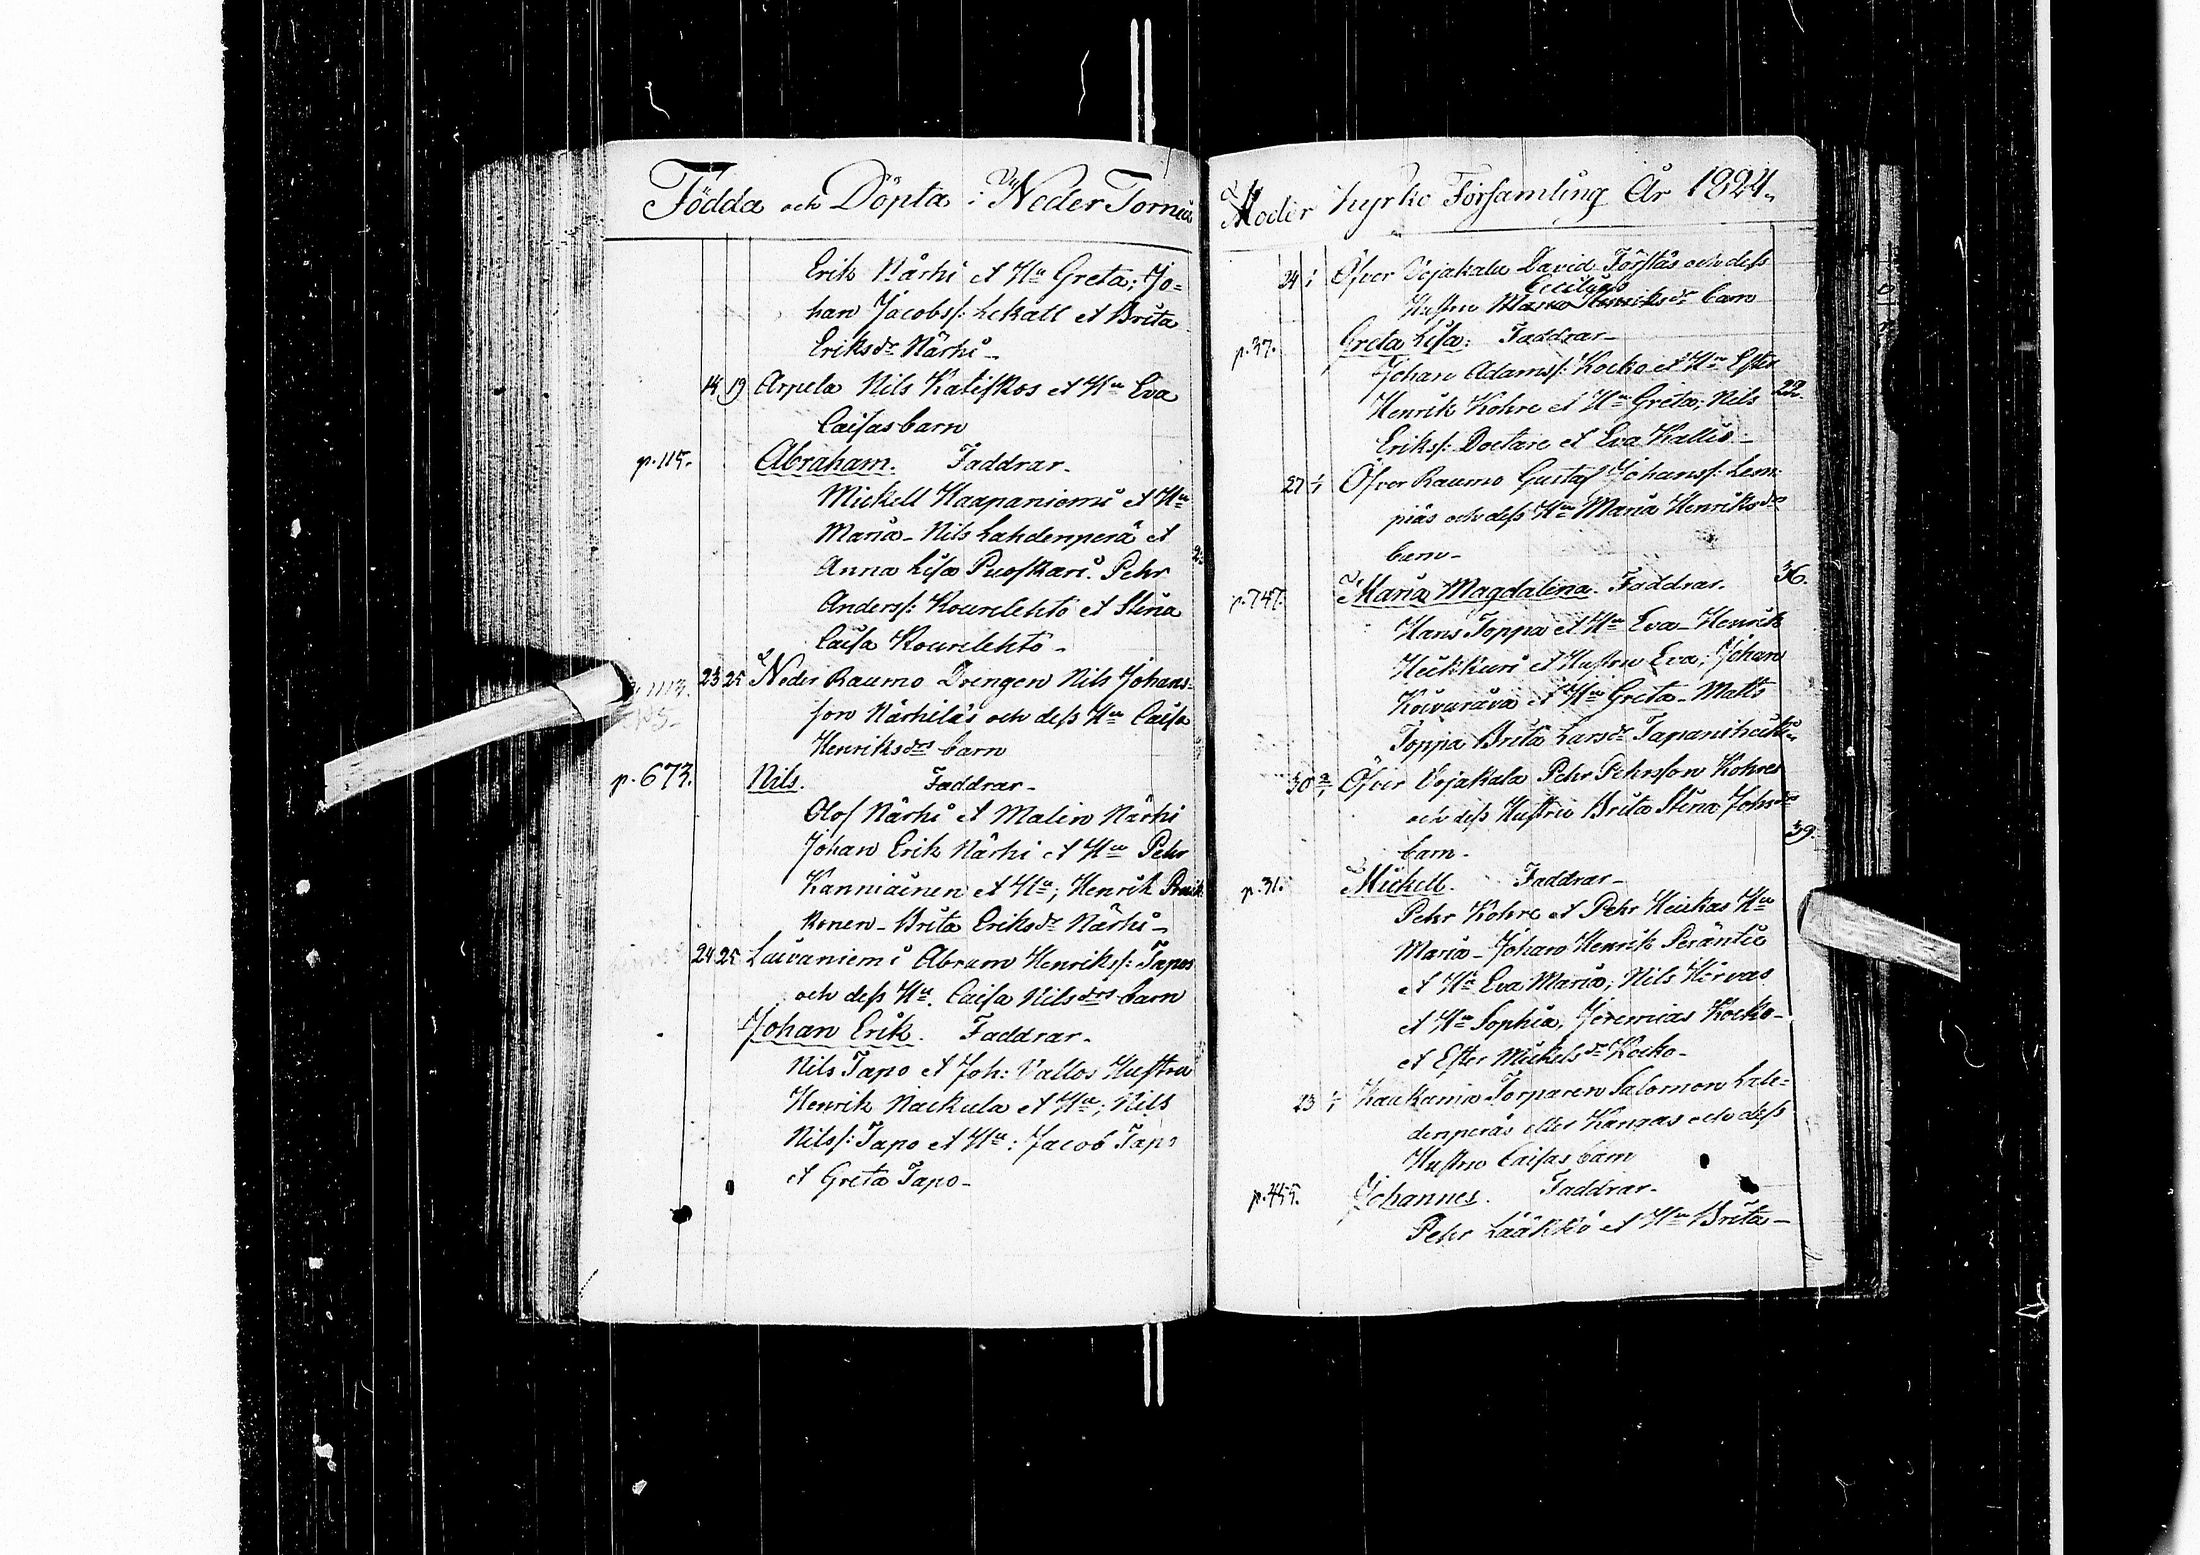 Födda och Döpta i Neder Torneå
Erik Närhi et Hu Greta; Jo=
han Jacobss: Lekatt et Brita
Eriksdr Närhi_
14 19 Arpela Nils Katiskos et Hu Eva
Caisas barn
p. 115. Abraham. Faddrar_
Mickell Haapaniemi et Hu
Maria_ Nils Lahdenperä et
Anna Lisa Puoskari. Pehr
Anderss: Kourilehto et Stina
Caisa Kourilehto_
23 25 Neder Raumo Drengen Nils Johans=
son Närhiläs och dess Hu Caisa
Henriksdrs barn
p. 673. Nils. Faddrar_
Olof Närhi et Malin Närhi
Johan Erik Närhi et Hu Pehr
Kanniainen et Hu; Henrik
konen_ Brita Eriksdr Närhi_
24 25 Laivaniemi Abram Henrikss: Tapos
och dess Hu. Caisa Nilsdrs barn
Johan Erik. Faddrar_
Nils Tapo et Joh: Vallos Hustru
Henrik Nackula et Hu; Nils
Nilss: Tapo et Hu: Jacob Tapo
et Greta Tapo_
Moder Kyrko Församling År 1824.
24 Öfver Vojakala David Förstås och dess
Cecilias
Hustru Maria Henriksdr barn
p. 37. Greta Lisa. Faddrar_
Johan Adamss: Kocko et Hu Ester
Henrik Kohre et Hu Greta; Nils 22.
Erikss: Doctare et Eva Kallio_
27 Öfver Raumo Gustaf Johanss: Lem=
piäs och dess Hu Maria Henriksdrs
barn_
36.
p. 747. Maria Magdalina. Faddrar.
Hans Toppa et Hu Eva_ Henrik
Heikkuri et Hustru Eva; Johan
Koivurova et Hu Greta_ Matts
Toppa Brita Larsdr Tapaniheikki
30 Öfver Vojakala Pehr Pehrsson Kohres
och dess Hustru Brita Stina Johsdrs
39.
barn_
p. 31. Mickell. Faddrar_
Pehr Kohre et Pehr Heikas Hu
Maria_ Johan Henrik Peräntie
et Hu Eva Maria; Nils Hirvas
et Hu Sophia, Jeremias Kocko_
et Ester Mickelsdr Kocko_
23 Kaakamo Torparen Salomon Lah=
denperäs eller Kangas och dess
Hustru Caisas barn
p. 455. Johannes. Faddrar_
Pehr Lääkkö et Hu Brita_